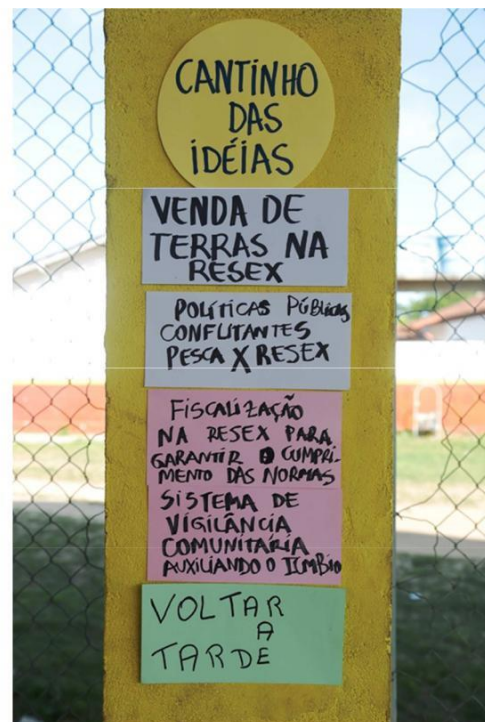 CANTINHO
DAS
IDÉIAS
VENDA DE
TERRAS NA
RESEX
POLÍTICAS PÚBLICAS
CONFLITANTES
PESCA X RESEX
FISCALIZAÇÃO
NA RESEX PARA
GARANTIR O CUMPRI-
MENTO DAS NORMAS
SISTEMA DE
VIGILÂNCIA
COMUNITÁRIA
AUXILIANDO O ICMBio
VOLTAR
A
TARDE